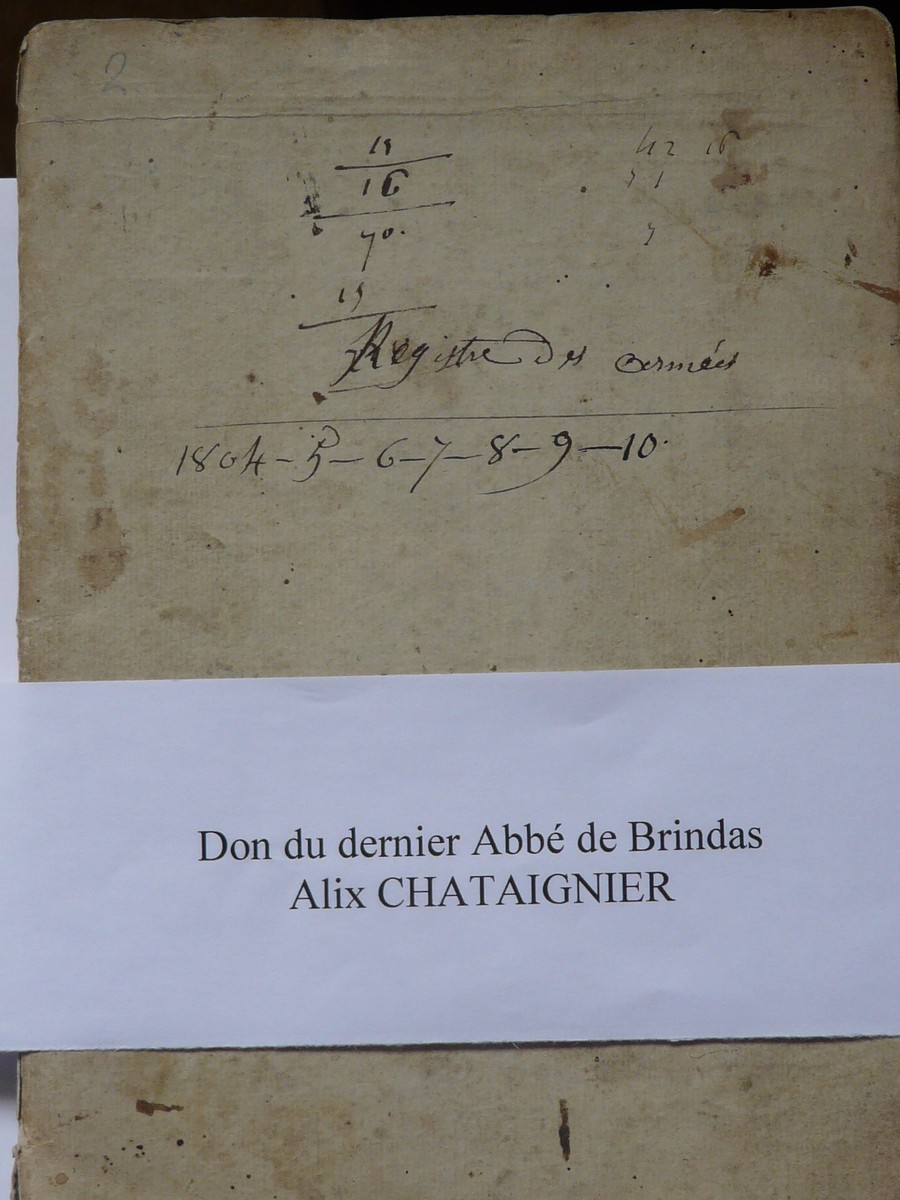 2
19
16
70.
19
42 16
71
7
Registre Des Années
1804 - 5 - 6 - 7 - 8 - 9 - 10.
Don du dernier Abbé de Brindas
Alix CHATAIGNIER